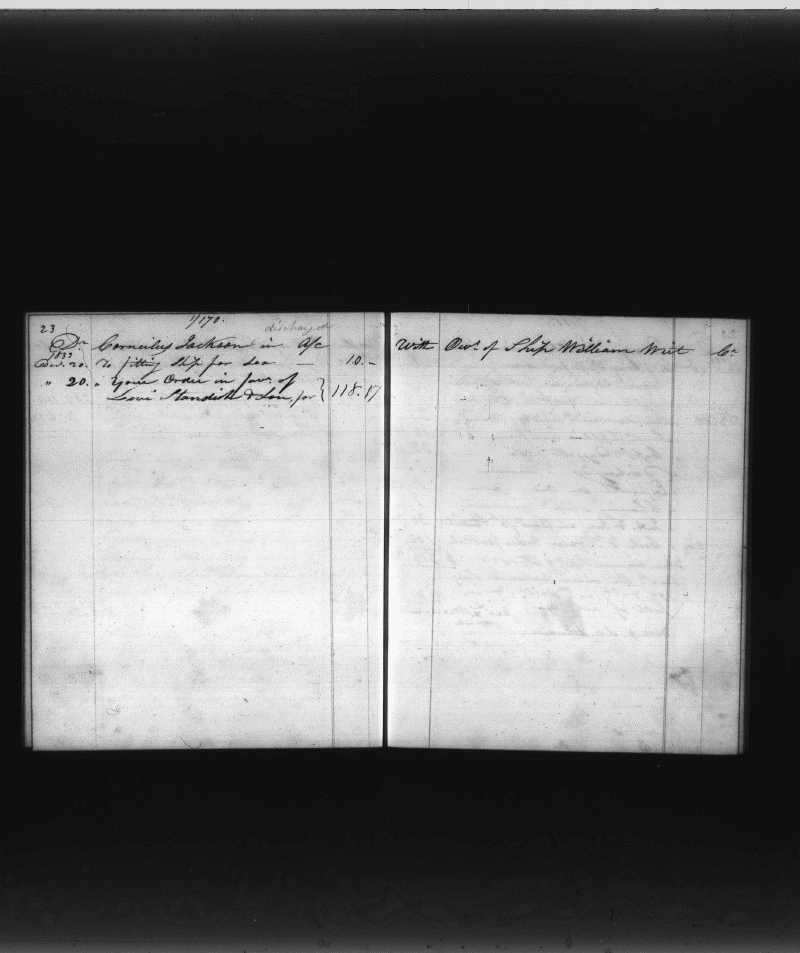 23
1/170.
discharged
Dr Cornelius Jackson in A/c With Owrs of Ship William Wirt Cr
1833
Decr. 20. To fitting Ship for Sea — 10.-
" 20. " Your Order in favr. of
Levi Standish & Son, for } 118.17